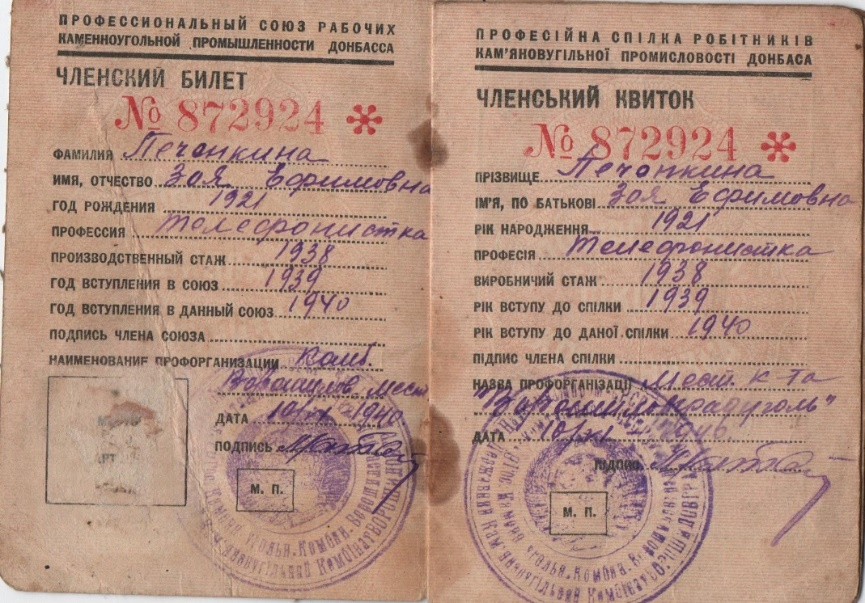 ПРОФЕССИОНАЛЬНЫЙ СОЮЗ РАБОЧИХ
КАМЕННОУГОЛЬНОЙ ПРОМЫШЛЕННОСТИ ДОНБАССА
ЧЛЕНСКИЙ БИЛЕТ
№ 872924 *
ФАМИЛИЯ Печонкина
ИМЯ, ОТЧЕСТВО Зоя Ефимовна
ГОД РОЖДЕНИЯ 1921
ПРОФЕССИЯ телефонистка
ПРОИЗВОДСТВЕННЫЙ СТАЖ 1938
ГОД ВСТУПЛЕНИЯ В СОЮЗ 1939
ГОД ВСТУПЛЕНИЯ В ДАННЫЙ СОЮЗ 1940
ПОДПИСЬ ЧЛЕНА СОЮЗА
НАИМЕНОВАНИЕ ПРОФОРГАНИЗАЦИИ Комб.
ДАТА 1940
ПОДПИСЬ
М. П.
ПРОФЕСІЙНА СПІЛКА РОБІТНИКІВ
КАМ'ЯНОВУГІЛЬНОЇ ПРОМИСЛОВОСТІ ДОНБАСА
ЧЛЕНСЬКИЙ КВИТОК
№ 872924 *
ПРІЗВИЩЕ Печонкина
ІМ'Я, ПО БАТЬКОВІ Зоя Ефимовна
РІК НАРОДЖЕННЯ 1921
ПРОФЕСІЯ телефонистка
ВИРОБНИЧИЙ СТАЖ 1938
РІК ВСТУПУ ДО СПІЛКИ 1939
РІК ВСТУПУ ДО ДАНОЇ СПІЛКИ 1940
ПІДПИС ЧЛЕНА СПІЛКИ
НАЗВА ПРОФОРГАНІЗАЦІЇ Мест. к та
ДАТА
ПІДПИС
М. П.